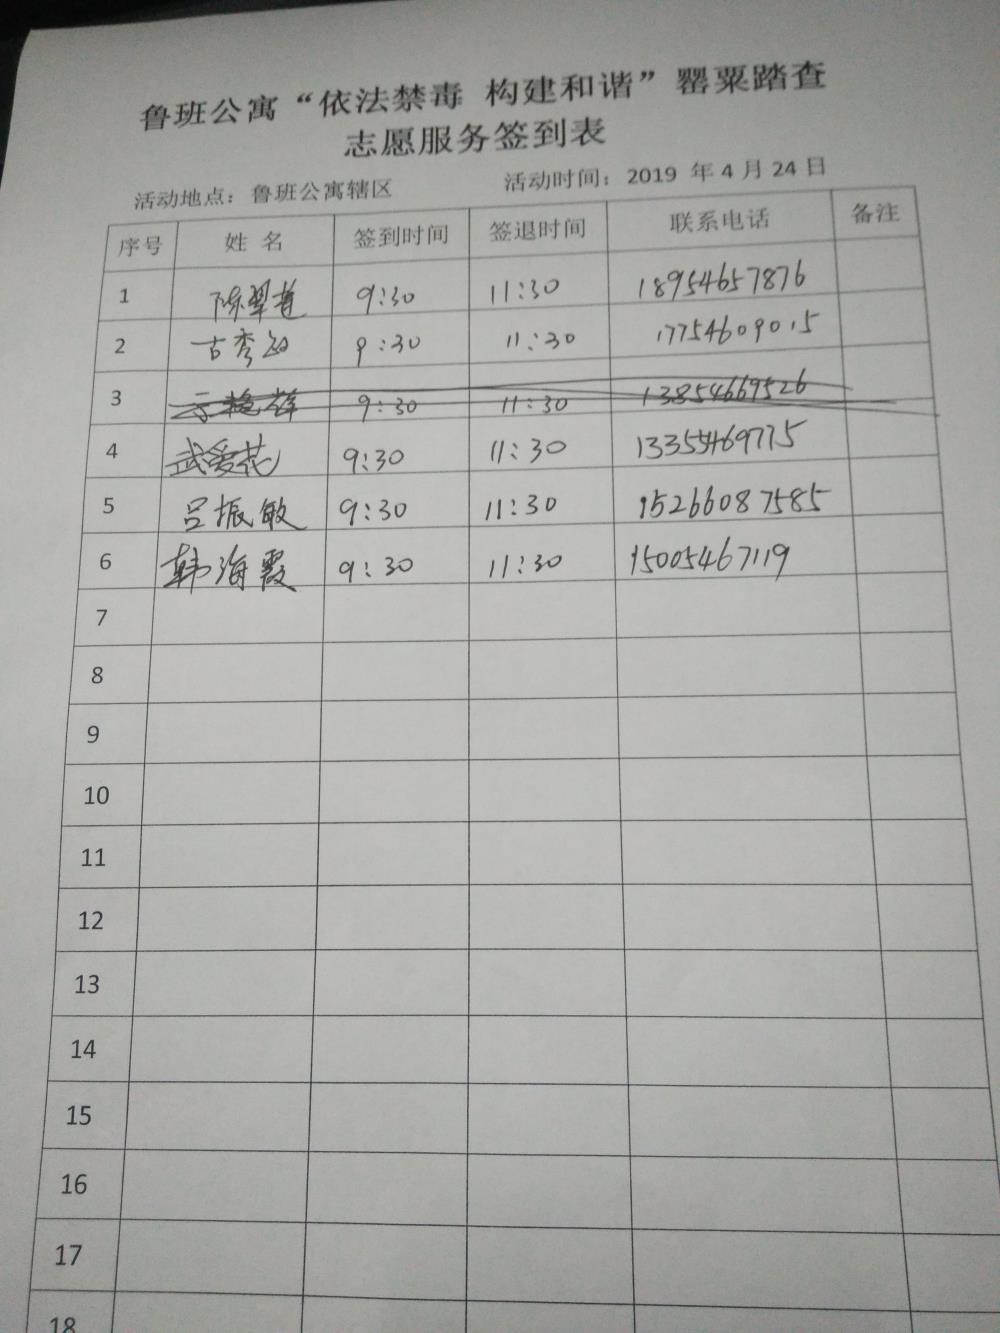 鲁班公寓“依法禁毒 构建和谐”罂粟踏查
志愿服务签到表
活动地点：鲁班公寓辖区 活动时间：2019 年 4 月 24 日
序号 姓 名 签到时间 签退时间 联系电话 备注
1 陈翠莲 9:30 11:30 18954657876
2 古秀 9:30 11:30 17754609015
3 9:30 11:30 13854669526
4 武爱花 9:30 11:30 13355469775
5 吕振敏 9:30 11:30 15266087585
6 韩海霞 9:30 11:30 15005467119
7
8
9
10
11
12
13
14
15
16
17
18